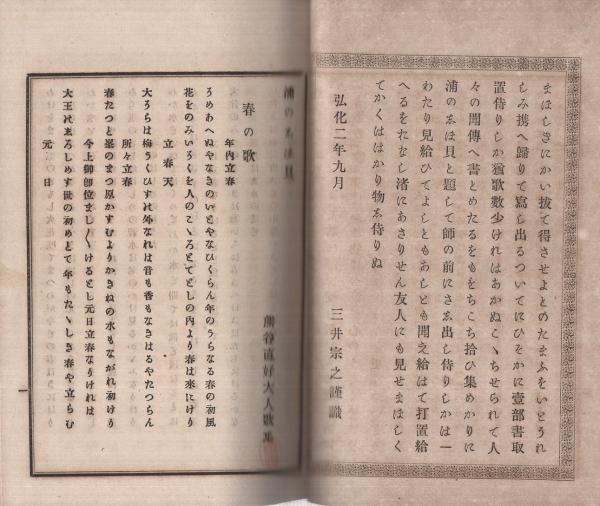 まほしきにかい披て得させよとのたまふをいとうれ
しみ携へ歸りて寫し出るついてにひそかに壹部書取
置侍りしか猶歌數少けれはあかぬこゝちせられて人
々の聞傳へ書とめたるをもをちこち拾ひ集めかりに
浦のしほ貝と題して師の前にさし出し侍りしかは一
わたり見給ひてよしともあしとも聞え給はて打置給
へるをたなし渚にあさりせん友人にも見せまほしく
てかくははかり物し侍りぬ
弘化二年九月
三井宗之謹識
浦のしほ貝
熊谷直好大人歌集
春の歌
年內立春
うめあへぬやなきのいとやなひくらん年のうちなる春の初風
花をのみいろくを人のこゝろとてとしの內より春は來にけり
立春天
大そらは梅うくひすは外なれは音も香もなきはるやたつらん
所々立春
春たつと峯のまつ原かすむよりかきねの水もなかれ初けり
今上御卽位ましましけるとし元日立春なりけれは
大王はしろしめす世の初めとて年もたゝしき春や立らむ
元日